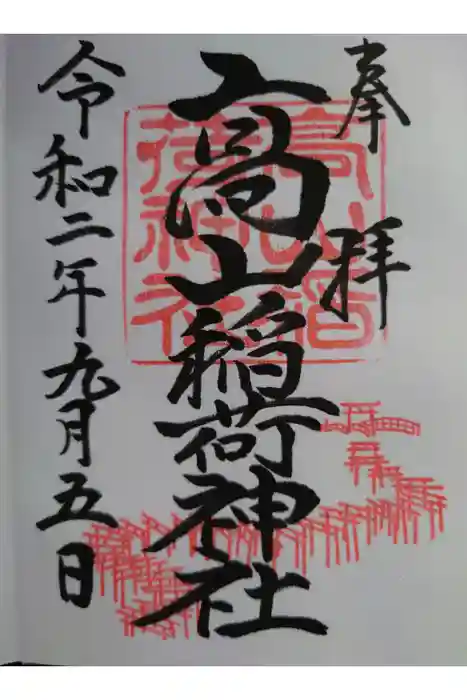 奉拝
高山稲荷神社
令和二年九月五日
高山稲
荷神社